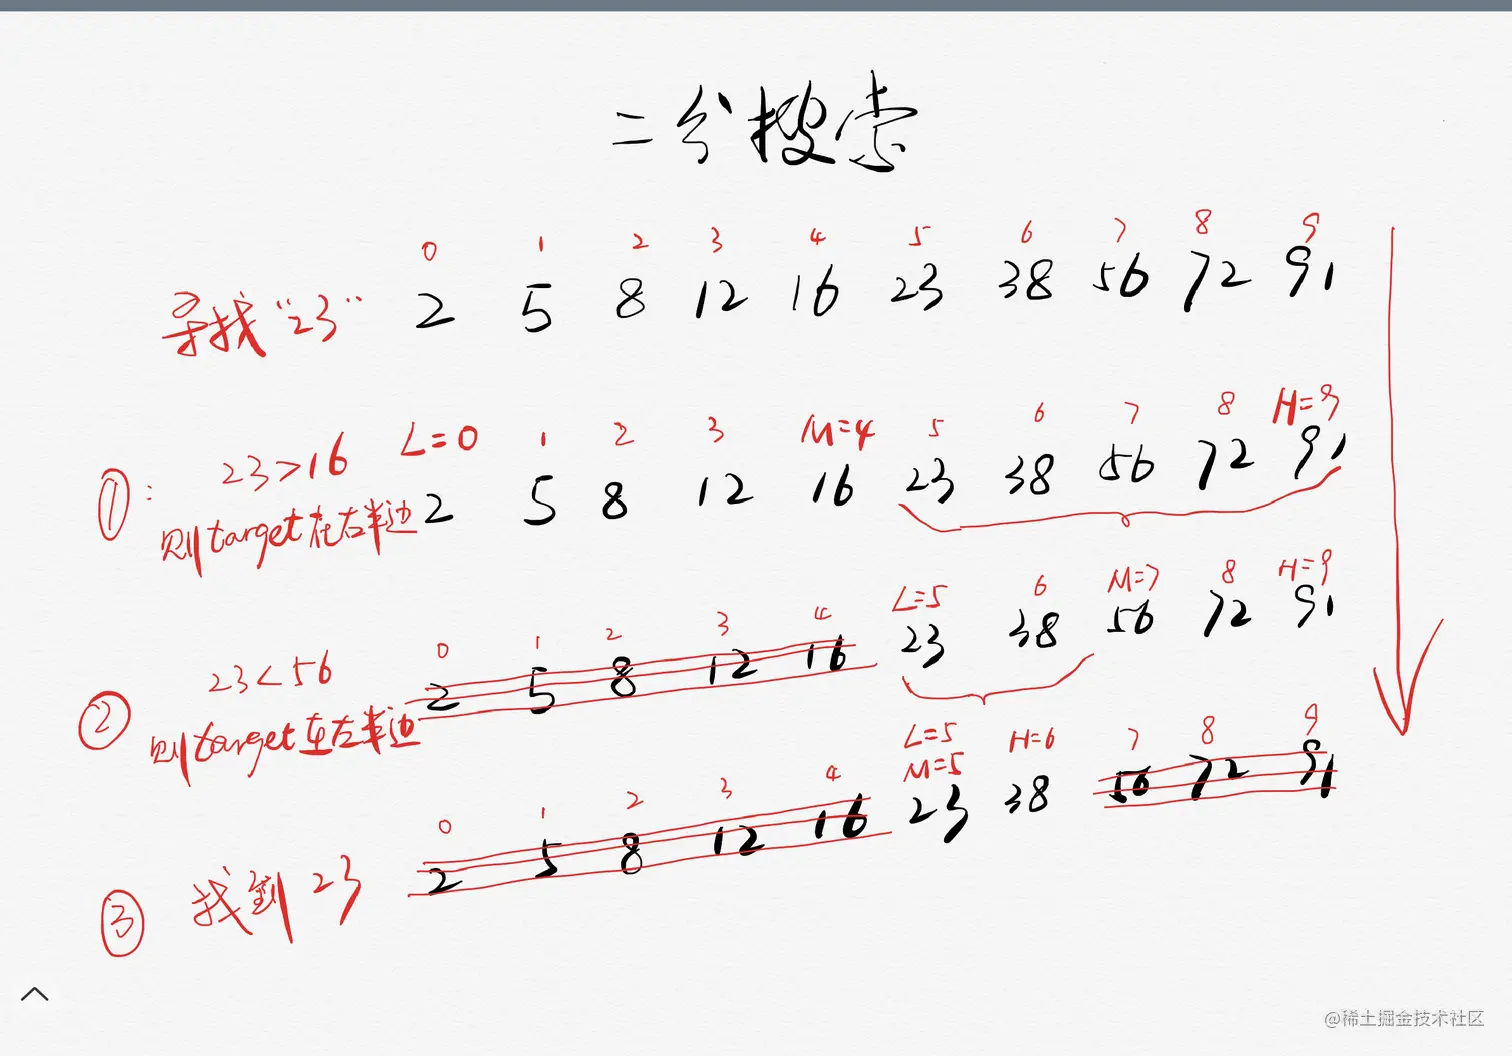 二分搜索
0 1 2 3 4 5 6 7 8 9
寻找“23” 2 5 8 12 16 23 38 56 72 91
L=0 1 2 3 M=4 5 6 7 8 H=9
①: 23>16 2 5 8 12 16 23 38 56 72 91
则target在右半边
0 1 2 3 4 L=5 6 M=7 8 H=9
② 23<56 2 5 8 12 16 23 38 56 72 91
则target在左半边
L=5 H=6 7 8 9
0 1 2 3 4 M=5
③ 找到 23 2 5 8 12 16 23 38 56 72 91
@稀土掘金技术社区